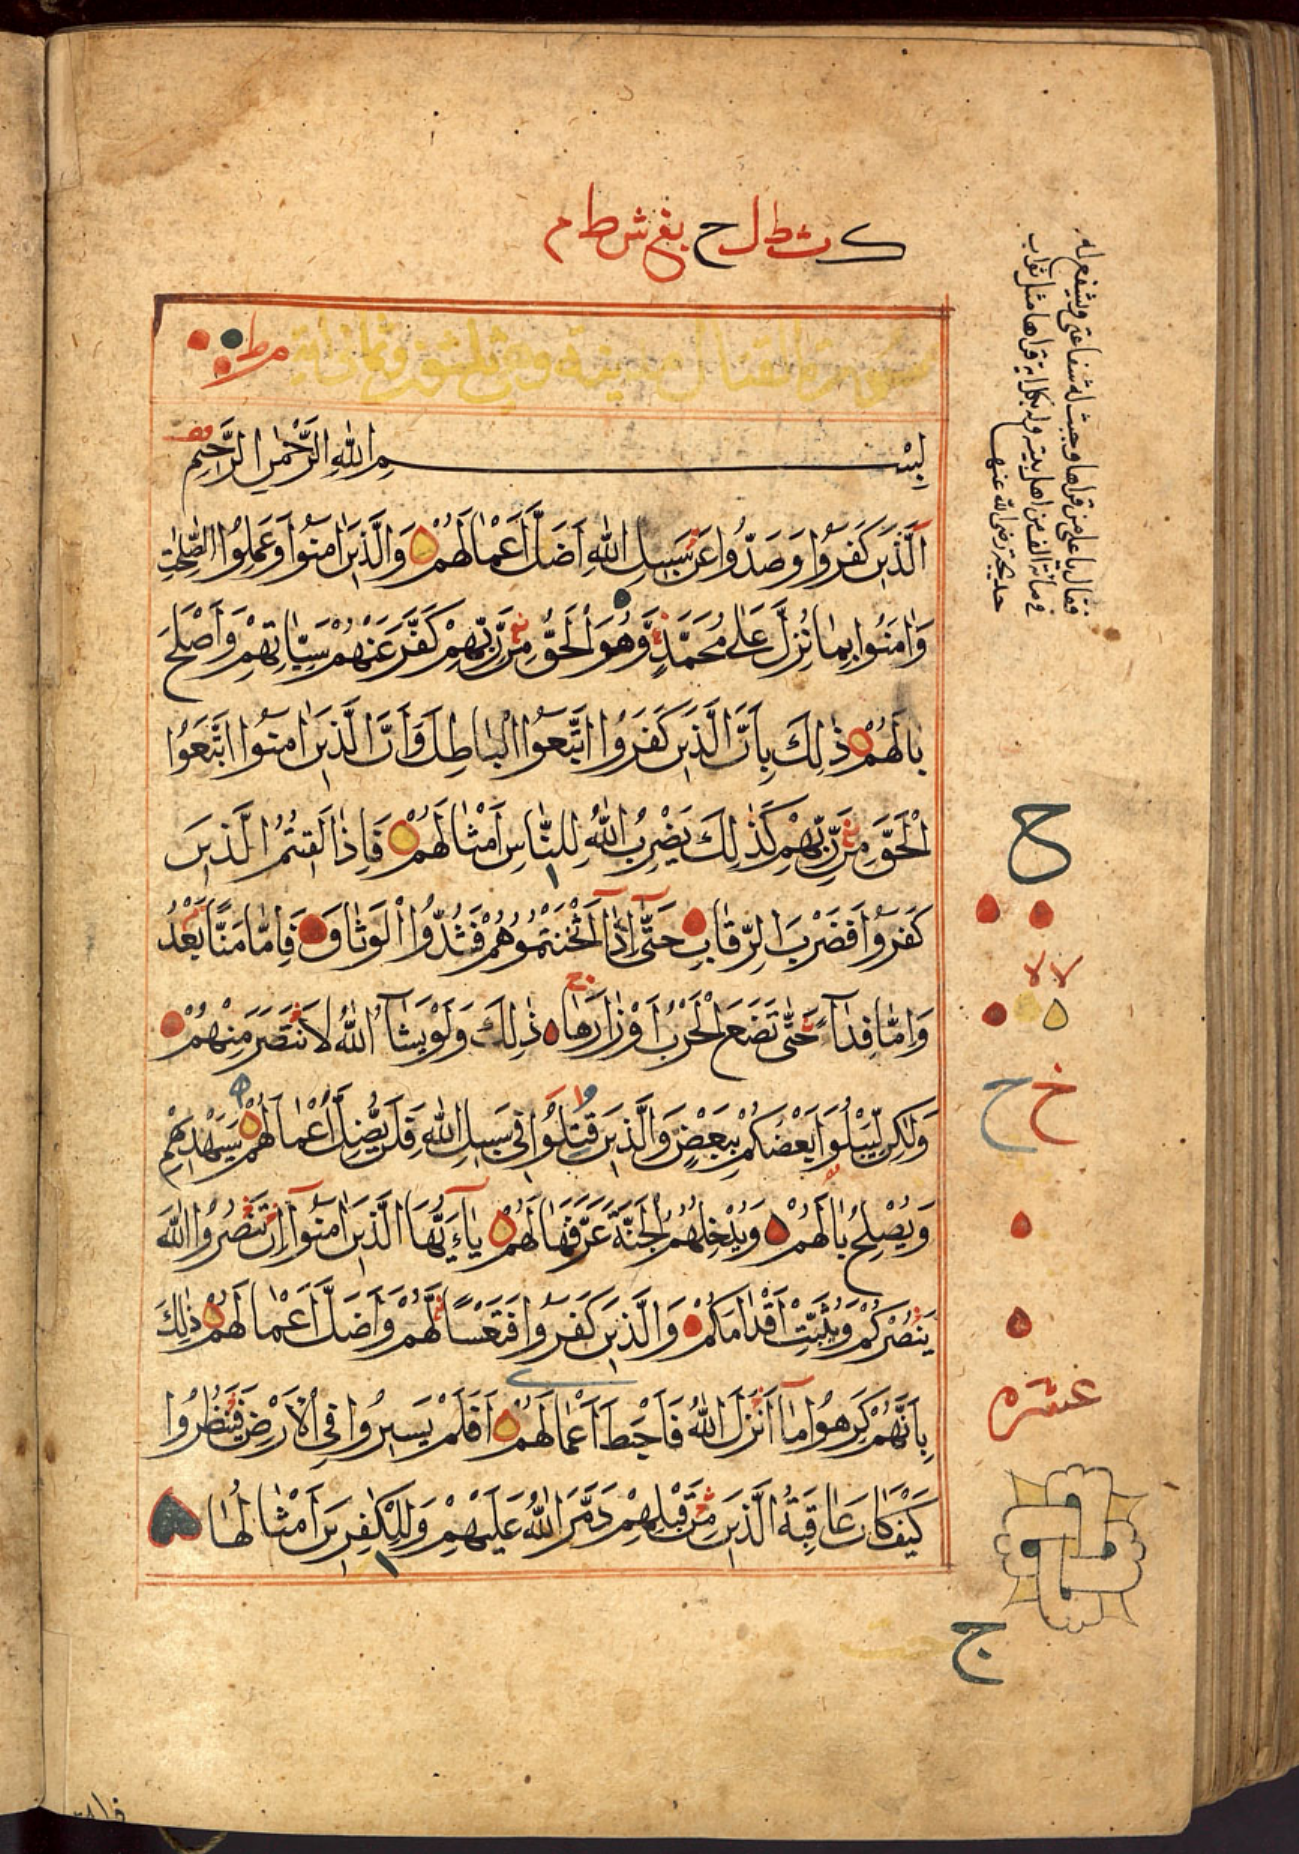 ک ث ط ل ح يغ ش ط م
سورة القتال مدينية وهي ثلثون وثماني اية
بِسْمِ اللهِ الرَّحْمٰنِ الرَّحِيْمِ
اَلَّذِيْنَ كَفَرُوْا وَصَدُّوْا عَنْ سَبِيْلِ اللهِ اَضَلَّ اَعْمَالَهُمْ وَالَّذِيْنَ اٰمَنُوْا وَعَمِلُوا الصّٰلِحٰتِ
وَاٰمَنُوْا بِمَا نُزِّلَ عَلٰى مُحَمَّدٍ وَّهُوَ الْحَقُّ مِنْ رَّبِّهِمْ كَفَّرَ عَنْهُمْ سَيِّاٰتِهِمْ وَاَصْلَحَ
بَالَهُمْ ذٰلِكَ بِاَنَّ الَّذِيْنَ كَفَرُوا اتَّبَعُوا الْبَاطِلَ وَاَنَّ الَّذِيْنَ اٰمَنُوا اتَّبَعُوا
الْحَقَّ مِنْ رَّبِّهِمْ كَذٰلِكَ يَضْرِبُ اللهُ لِلنَّاسِ اَمْثَالَهُمْ فَاِذَا لَقِيْتُمُ الَّذِيْنَ
كَفَرُوْا فَضَرْبَ الرِّقَابِ حَتّٰى اِذَا اَثْخَنْتُمُوْهُمْ فَشُدُّوا الْوَثَاقَ فَاِمَّا مَنًّا بَعْدُ
وَاِمَّا فِدَآءً حَتّٰى تَضَعَ الْحَرْبُ اَوْزَارَهَا ذٰلِكَ وَلَوْ يَشَآءُ اللهُ لَانْتَصَرَ مِنْهُمْ
وَلٰكِنْ لِّيَبْلُوَا بَعْضَكُمْ بِبَعْضٍ وَالَّذِيْنَ قُتِلُوْا فِيْ سَبِيْلِ اللهِ فَلَنْ يُّضِلَّ اَعْمَالَهُمْ سَيَهْدِيْهِمْ
وَيُصْلِحُ بَالَهُمْ وَيُدْخِلُهُمُ الْجَنَّةَ عَرَّفَهَا لَهُمْ يٰاَيُّهَا الَّذِيْنَ اٰمَنُوْا اِنْ تَنْصُرُوا اللهَ
يَنْصُرْكُمْ وَيُثَبِّتْ اَقْدَامَكُمْ وَالَّذِيْنَ كَفَرُوْا فَتَعْسًا لَّهُمْ وَاَضَلَّ اَعْمَالَهُمْ ذٰلِكَ
بِاَنَّهُمْ كَرِهُوْا مَآ اَنْزَلَ اللهُ فَاَحْبَطَ اَعْمَالَهُمْ اَفَلَمْ يَسِيْرُوْا فِي الْاَرْضِ فَيَنْظُرُوْا
كَيْفَ كَانَ عَاقِبَةُ الَّذِيْنَ مِنْ قَبْلِهِمْ دَمَّرَ اللهُ عَلَيْهِمْ وَلِلْكٰفِرِيْنَ اَمْثَالُهَا
فقال يا علي من قراها وجبت له شفاعتي ويشفع له
في مائة الف من اهل بيته وله بكل اية قراها مثل ثواب
خديجة رضي الله عنها
ح
لا لا
خ ح
عشره
ج